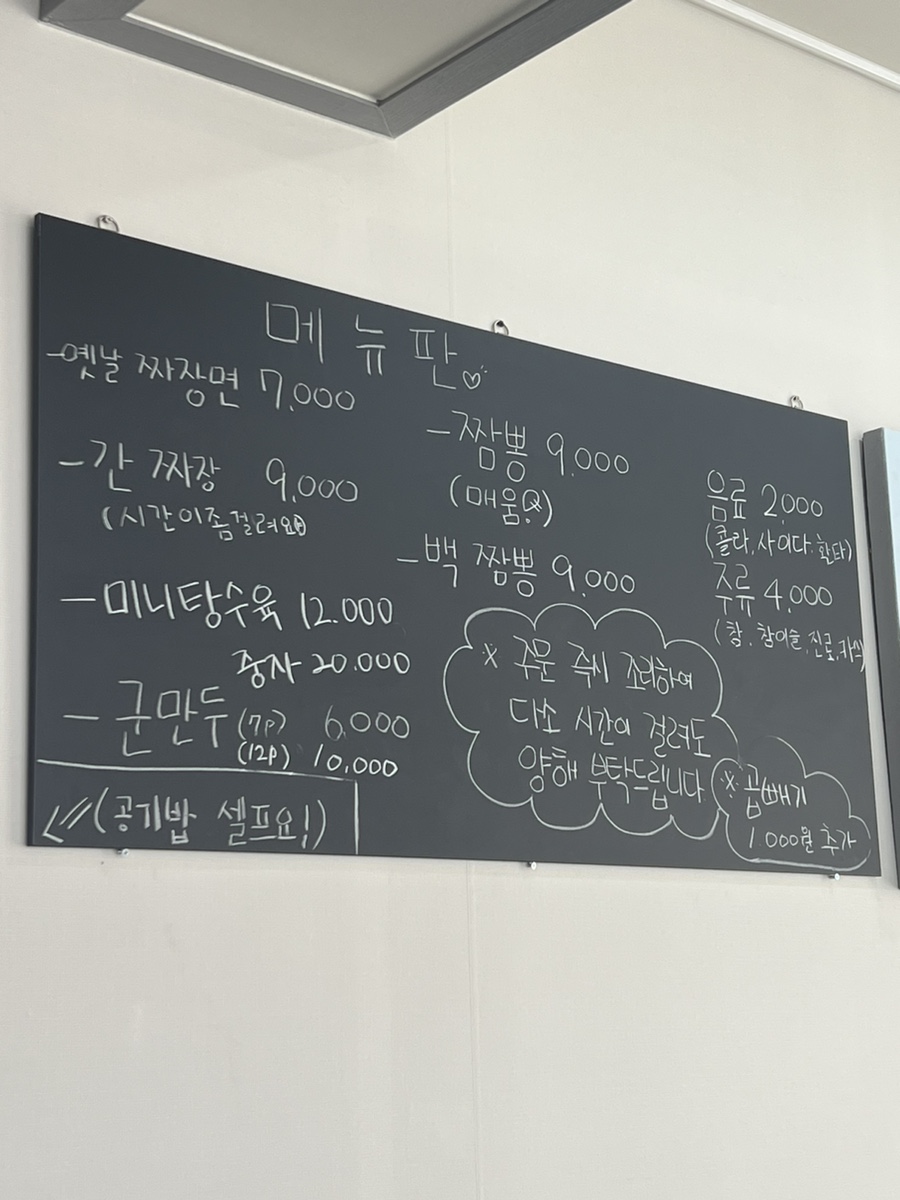 메뉴판♡
-옛날 짜장면 7,000
-간 짜장 9,000
(시간이좀걸려요)
-미니탕수육 12.000
중자 20.000
-군만두 (7P) 6,000
(12P) 10,000
(공기밥 셀프요!)
-짬뽕 9,000
(매움)
-백 짬뽕 9,000
음료 2,000
(콜라, 사이다, 환타)
주류 4,000
(참이슬, 진로, 카스)
※ 주문 즉시 조리하여
다소 시간이 걸려도
양해 부탁드립니다
※ 곱빼기
1.000원 추가